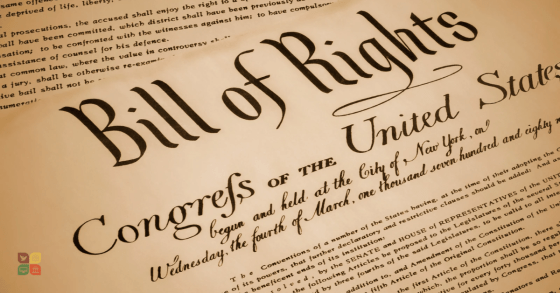 same offen
be deprived of life, liberty,
l prosecutions, the accused shall enjoy the right to a
all have been committed, which district shall have been previously
sation; to be confronted with the witnesses against him; to have compulso
ssistance of counsel for his defence.
t common law, where the value in controversy
a jury, shall be otherwise re-exam
ive bail shall not be
numerati
Bill of Rights
Congreſs OF THE United States
begun and held at the City of New York, on
Wednesday, the fourth of March, one thousand seven hundred and eighty n
The Conventions of a number of the States having, at the time of their adopting the C
of its powers, that further declaratory and restrictive clauses should be added: And
beneficent ends of its institution:
by the SENATE and HOUSE of REPRESENTATIVES of the UNI
the following Articles be proposed to the Legislatures of the several
by three fourths of the said Legislatures, to be valid to all in
addition to, and Amendment of the Constitution
fifth Article of the Original Constitution.
the first Article of the Constitution, there